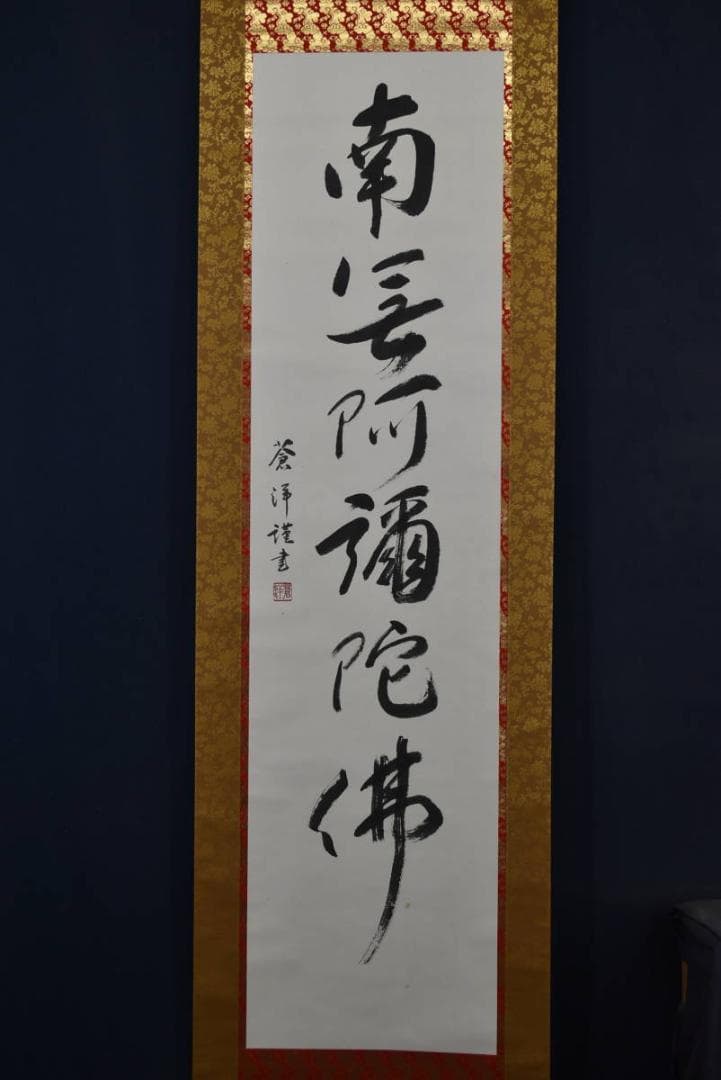 南無阿彌陀佛
蒼洋謹書